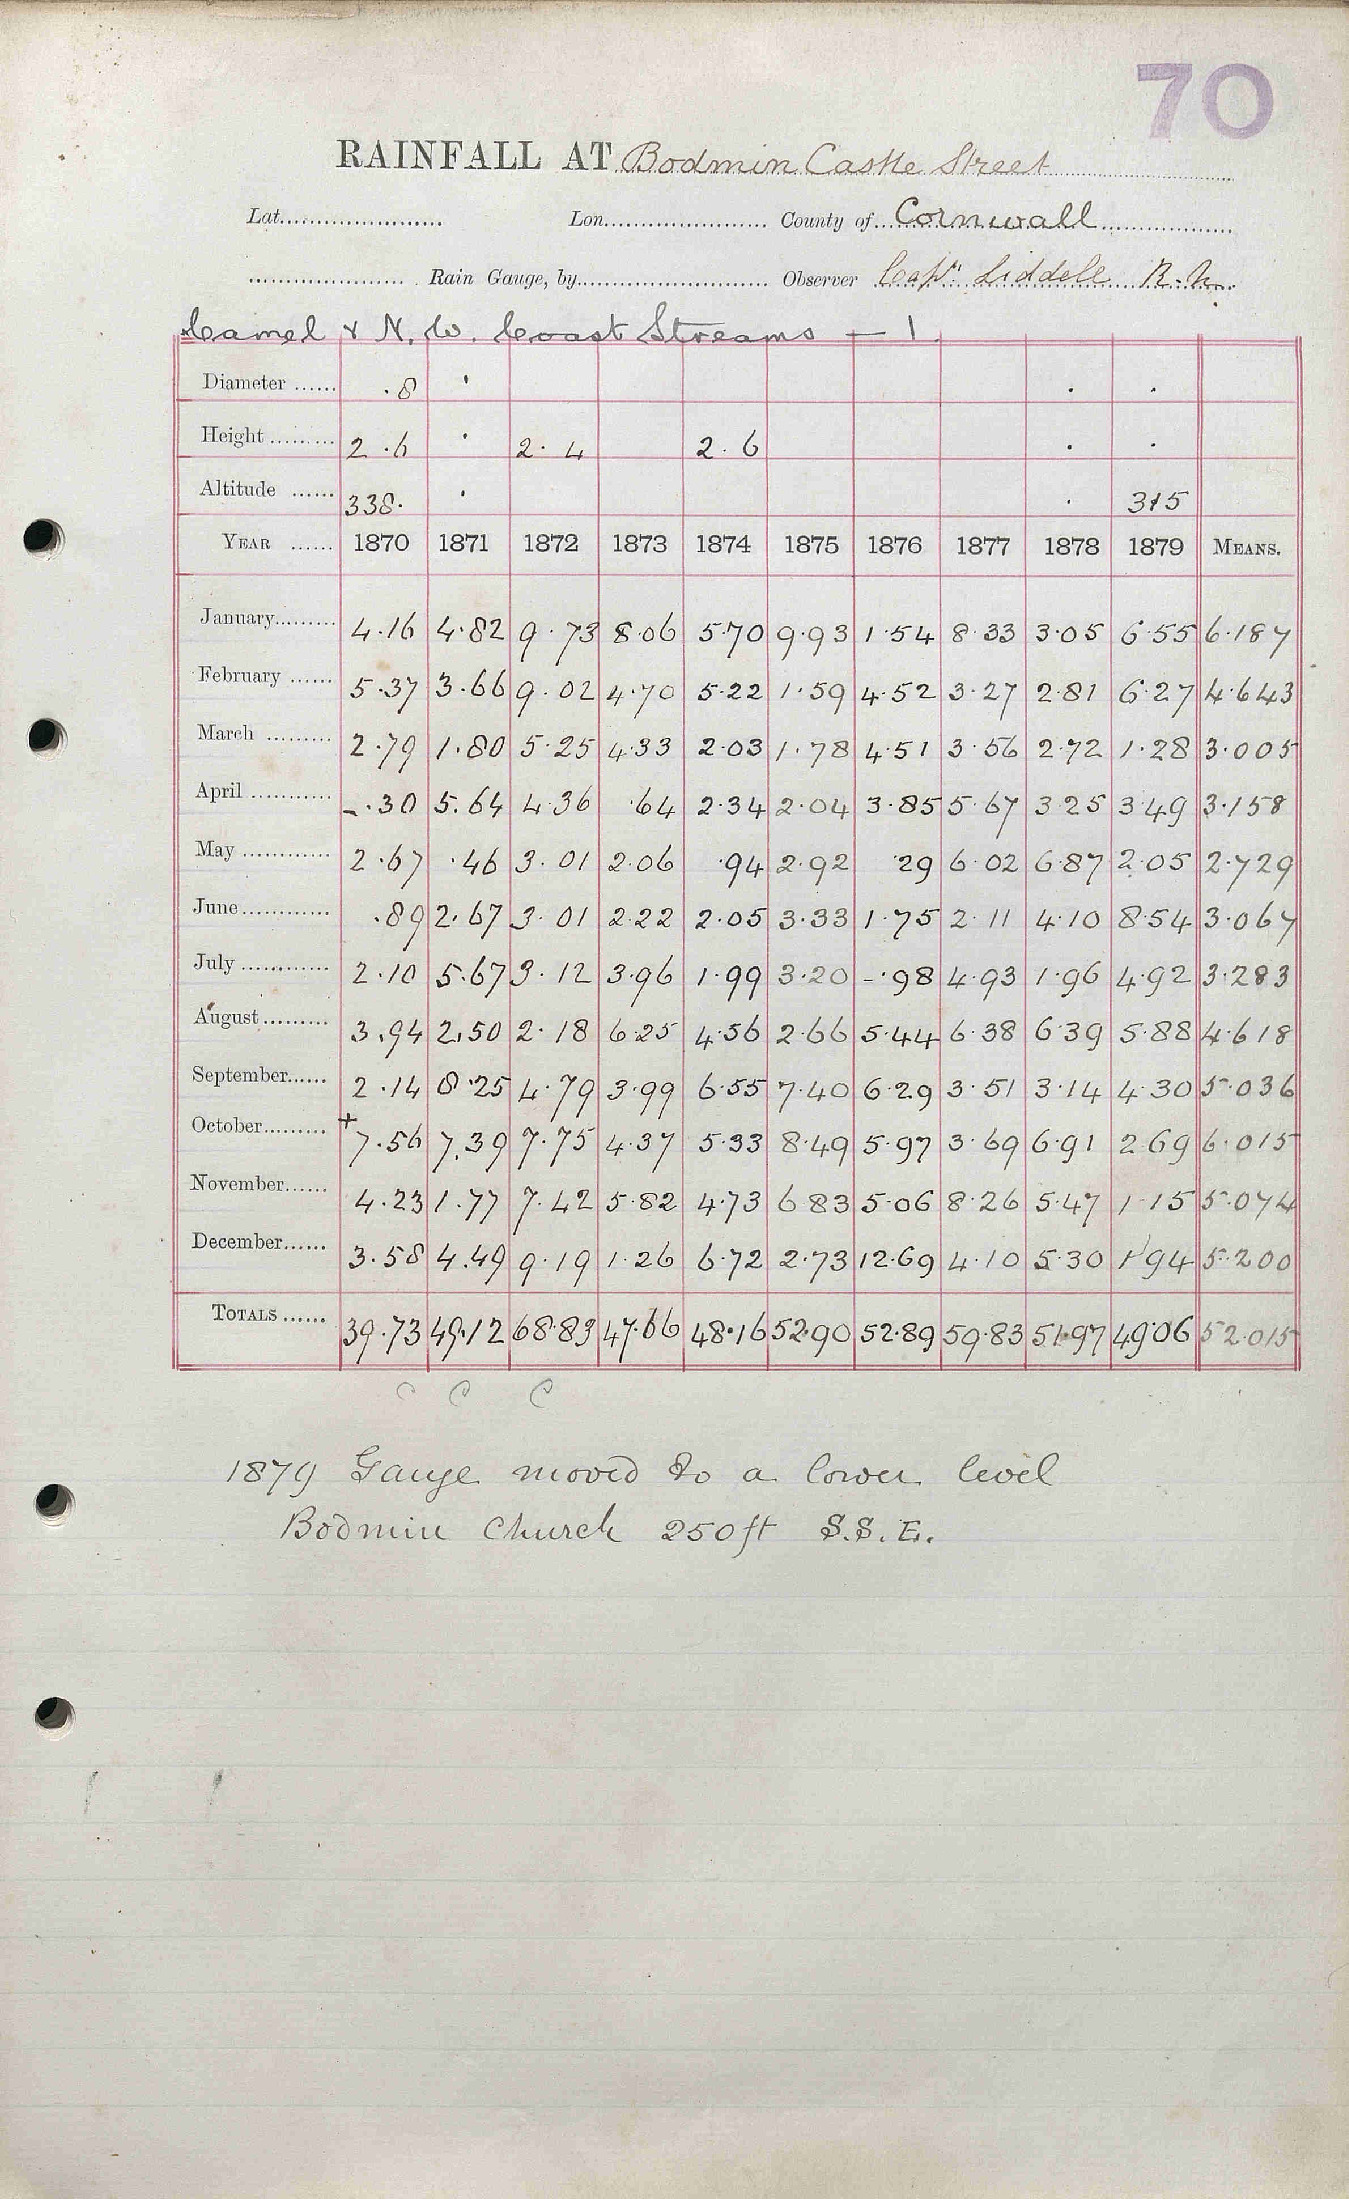 70
RAINFALL AT Bodmin Castle Street
Lat. Lon. County of Cornwall
Rain Gauge, by Observer Capt. Liddell R.N.
Camel & N. W. Coast Streams — 1.
Diameter .8 · · ·
Height 2.6 · 2.4 2.6 · ·
Altitude 338. · · 315
YEAR 1870 1871 1872 1873 1874 1875 1876 1877 1878 1879 MEANS.
January 4.16 4.82 9.73 8.06 5.70 9.93 1.54 8.33 3.05 6.55 6.187
February 5.37 3.66 9.02 4.70 5.22 1.59 4.52 3.27 2.81 6.27 4.643
March 2.79 1.80 5.25 4.33 2.03 1.78 4.51 3.56 2.72 1.28 3.005
April -.30 5.64 4.36 .64 2.34 2.04 3.85 5.67 3.25 3.49 3.158
May 2.67 .46 3.01 2.06 .94 2.92 .29 6.02 6.87 2.05 2.729
June .89 2.67 3.01 2.22 2.05 3.33 1.75 2.11 4.10 8.54 3.067
July 2.10 5.67 3.12 3.96 1.99 3.20 -.98 4.93 1.96 4.92 3.283
August 3.94 2.50 2.18 6.25 4.56 2.66 5.44 6.38 6.39 5.88 4.618
September 2.14 8.25 4.79 3.99 6.55 7.40 6.29 3.51 3.14 4.30 5.036
October +7.56 7.39 7.75 4.37 5.33 8.49 5.97 3.69 6.91 2.69 6.015
November 4.23 1.77 7.42 5.82 4.73 6.83 5.06 8.26 5.47 1.15 5.074
December 3.58 4.49 9.19 1.26 6.72 2.73 12.69 4.10 5.30 1.94 5.200
TOTALS 39.73 49.12 68.83 47.66 48.16 52.90 52.89 59.83 51.97 49.06 52.015
C C C
1879 Gauge moved to a lower level
Bodmin Church 250ft S.S.E.